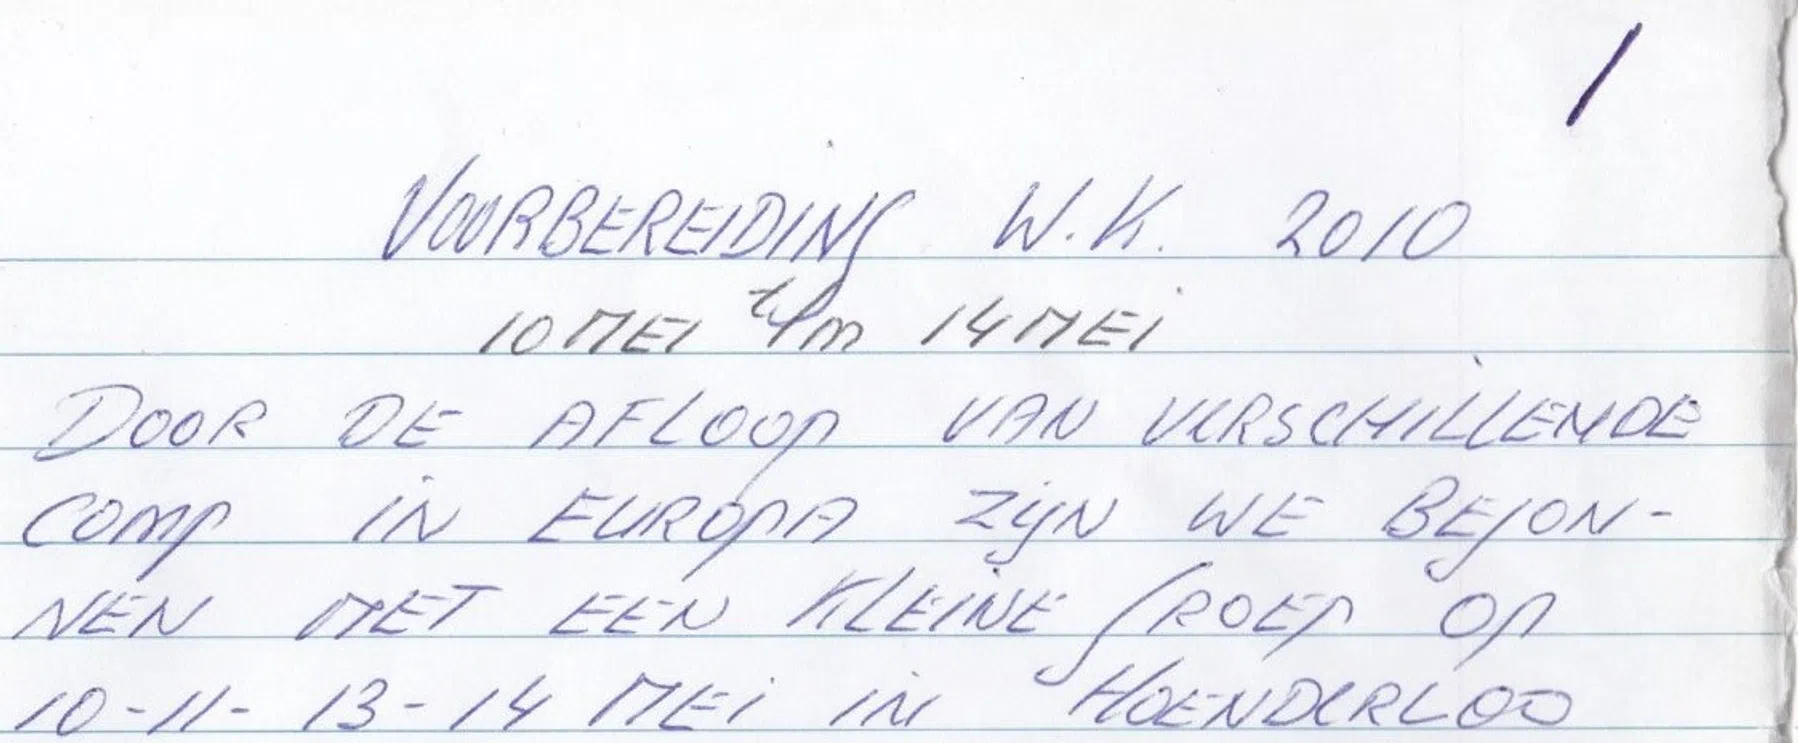 1
VOORBEREIDING W.K. 2010
10 MEI t/m 14 MEI
DOOR DE AFLOOP VAN VERSCHILLENDE
COMP IN EUROPA ZIJN WE BEGON-
NEN MET EEN KLEINE GROEP OP
10-11-13-14 MEI IN HOENDERLOO